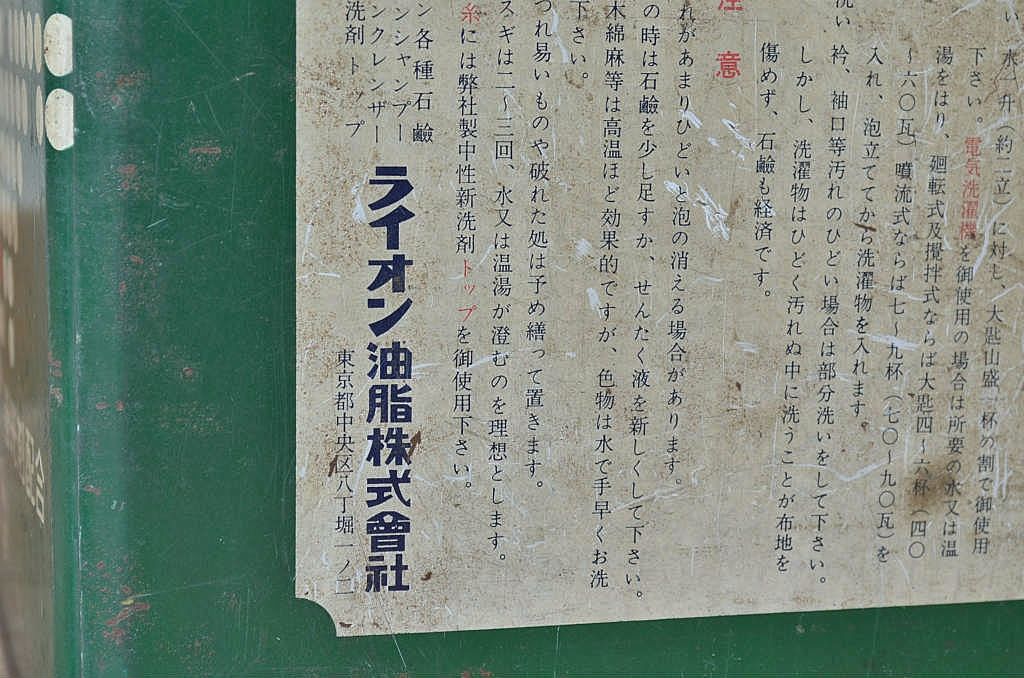 水一升(約二立)に対し、大匙山盛一杯の割で御使用
下さい。電気洗濯機を御使用の場合は所要の水又は温
湯をはり、廻転式及攪拌式ならば大匙四～六杯(四〇
～六〇瓦)噴流式ならば七～九杯(七〇～九〇瓦)を
入れ、泡立ててから洗濯物を入れます。
衿、袖口等汚れのひどい場合は部分洗いをして下さい。
しかし、洗濯物はひどく汚れぬ中に洗うことが布地を
傷めず、石鹼も経済です。
注意
れがあまりひどいと泡の消える場合があります。
の時は石鹼を少し足すか、せんたく液を新しくして下さい。
木綿麻等は高温ほど効果的ですが、色物は水で手早くお洗
下さい。
つれ易いものや破れた処は予め繕って置きます。
スギは二～三回、水又は温湯が澄むのを理想とします。
糸には弊社製中性新洗剤トップを御使用下さい。
ン各種石鹼
ンシャンプー
ンクレンザー
洗剤トップ
ライオン油脂株式會社
東京都中央区八丁堀一ノ二